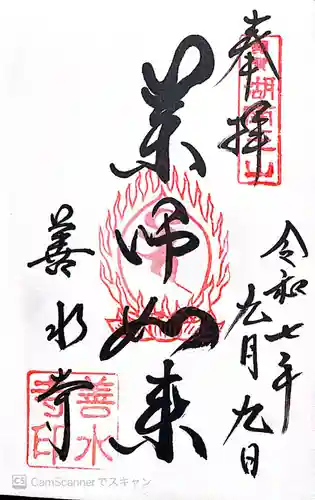 奉拝
湖南三山
令和七年
九月九日
薬師如来
善水寺
善水寺印
CS CamScannerでスキャン